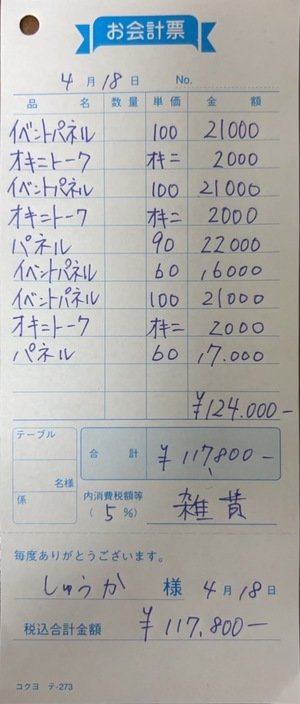 お会計票
4月18日 No.
品名 数量 単価 金額
イベントパネル 100 21000
オキニトーク オキニ 2000
イベントパネル 100 21000
オキニトーク オキニ 2000
パネル 90 22000
イベントパネル 60 16000
イベントパネル 100 21000
オキニトーク オキニ 2000
パネル 60 17.000
¥124.000-
テーブル
名様
係
合計 ¥117,800-
内消費税額等
(5%) 雑費
毎度ありがとうございます。
しゅうか 様 4月18日
税込合計金額 ¥117.800-
コクヨ テ-273